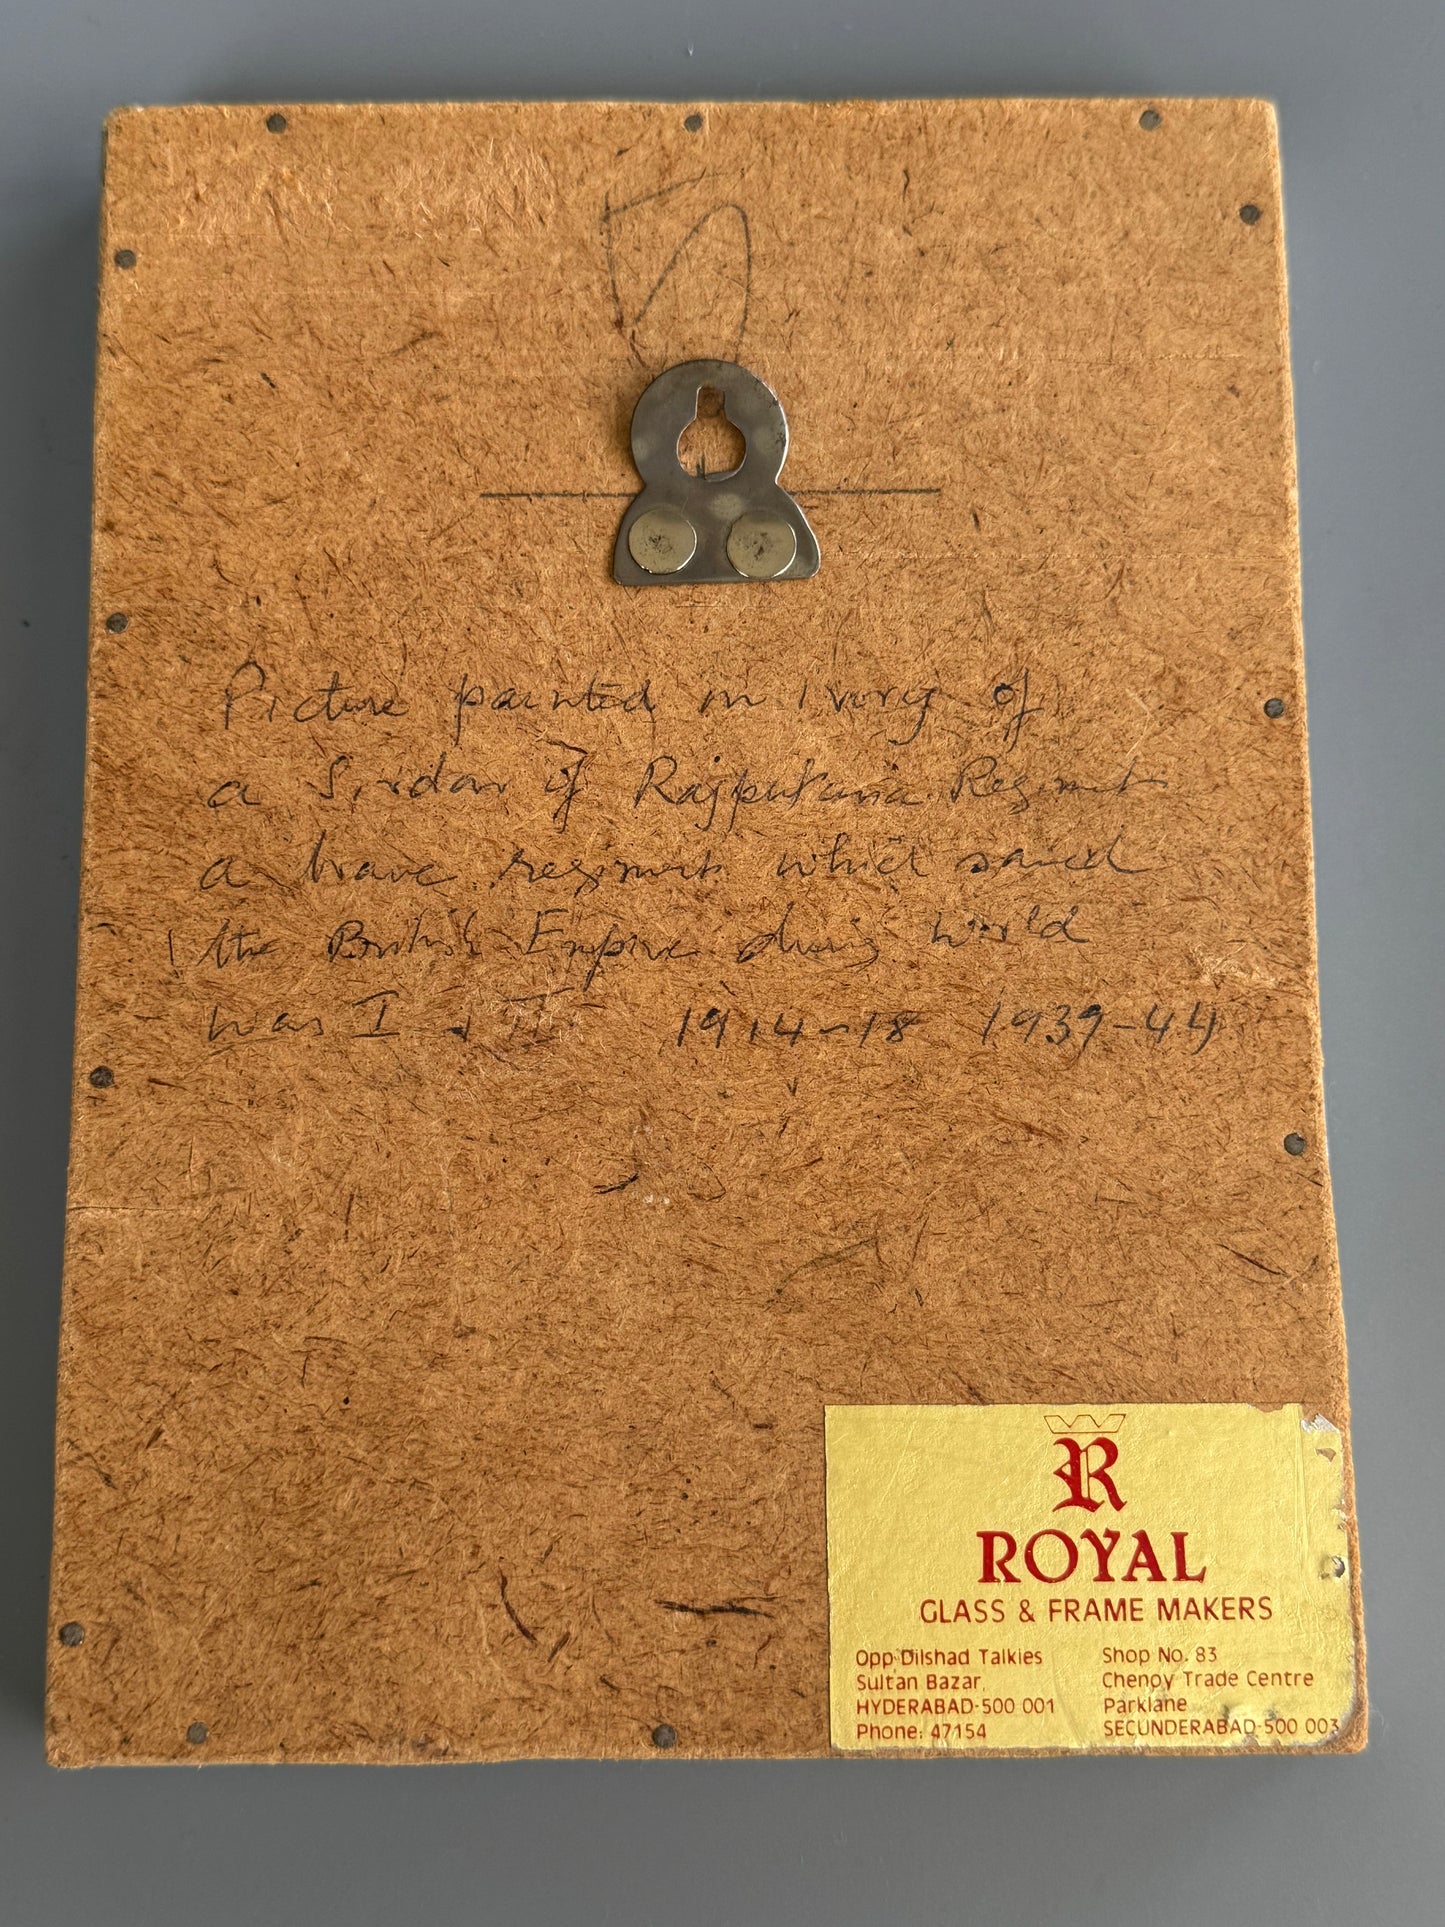 Picture painted on Ivory of
a Sirdar of Rajputana Regiment
a brave regiment which saved
the British Empire during World
was I & II 1914-18 1939-44
R
ROYAL
GLASS & FRAME MAKERS
Opp Dilshad Talkies
Sultan Bazar,
HYDERABAD-500 001
Phone: 47154
Shop No. 83
Chenoy Trade Centre
Parklane
SECUNDERABAD-500 003